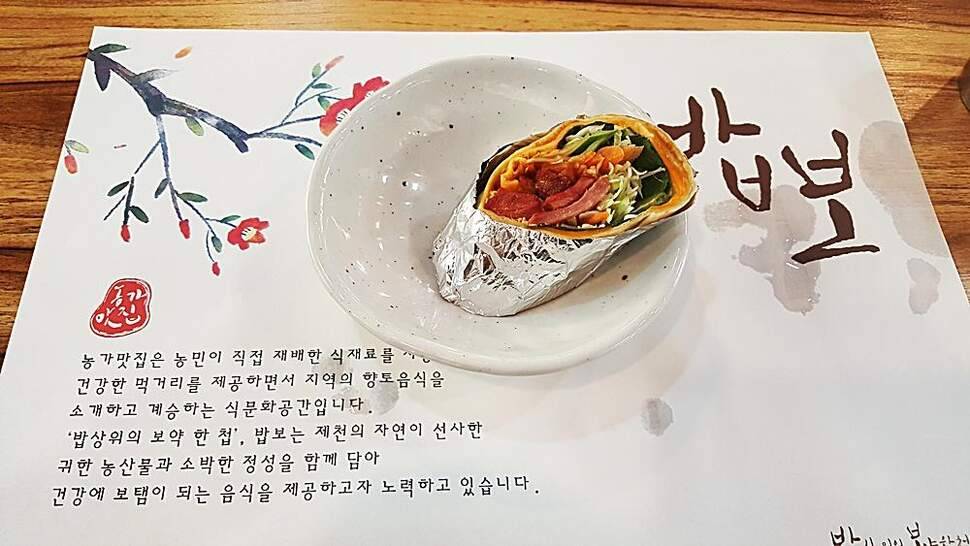 밥보
농가
맛집
농가맛집은 농민이 직접 재배한 식재료를
건강한 먹거리를 제공하면서 지역의 향토음식을
소개하고 계승하는 식문화공간입니다.
'밥상위의 보약 한 첩', 밥보는 제천의 자연이 선사한
귀한 농산물과 소박한 정성을 함께 담아
건강에 보탬이 되는 음식을 제공하고자 노력하고 있습니다.